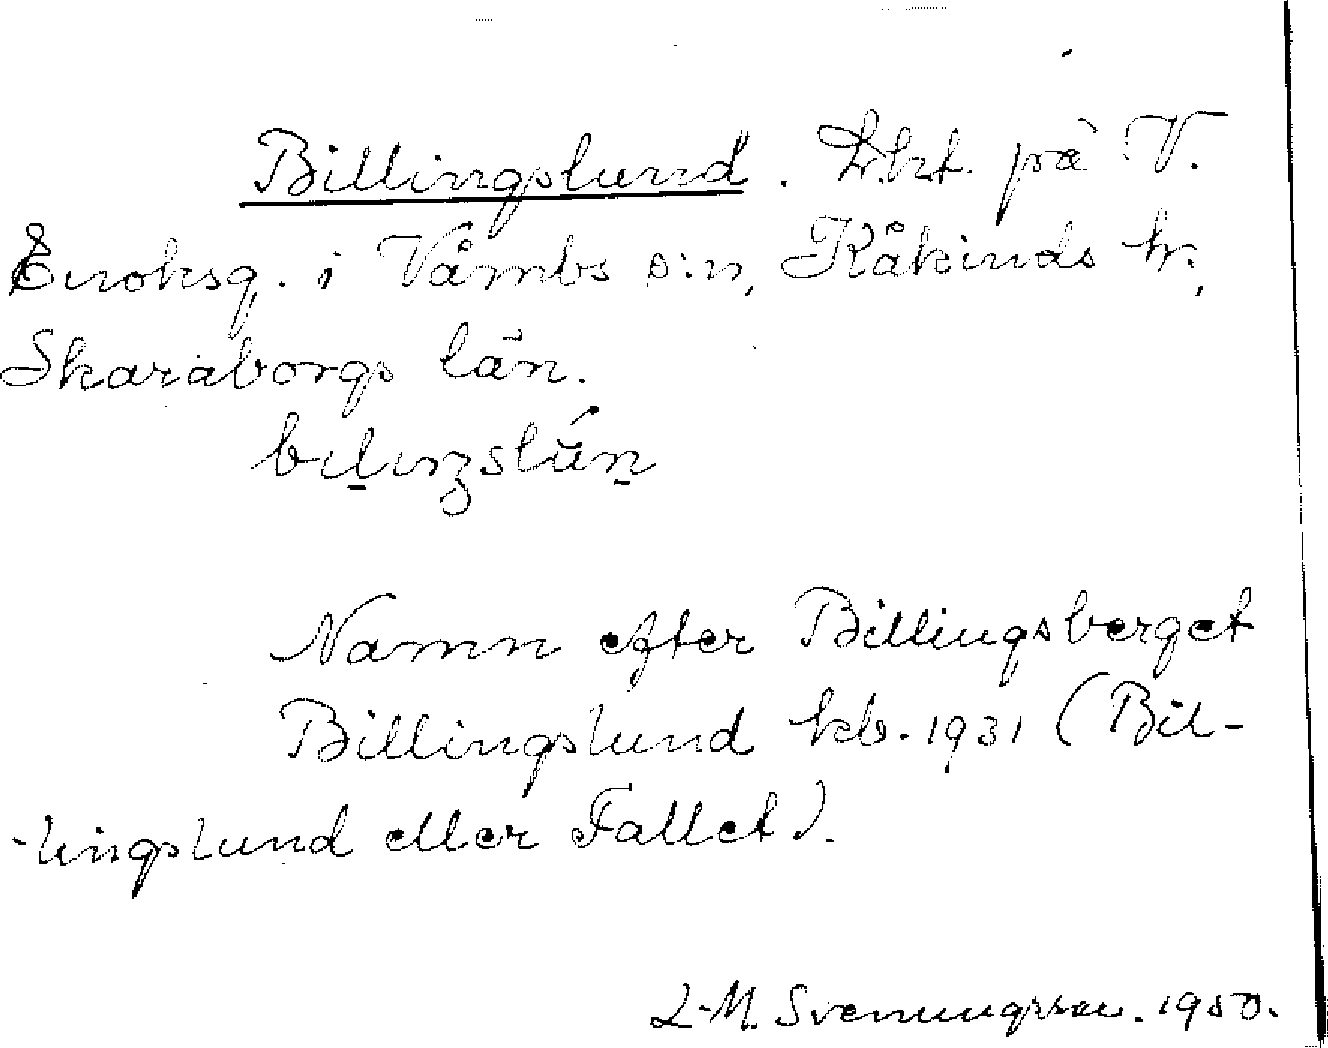 Billingslund. Lht. på V.
Enoksg. i Våmbs s:n, Kåkinds h:,
Skaraborgs län.
Namn efter Billingsberget
Billingslund kb. 1931 (Bil-
-lingslund eller Fallet).
L-M. Svenungsson. 1950.